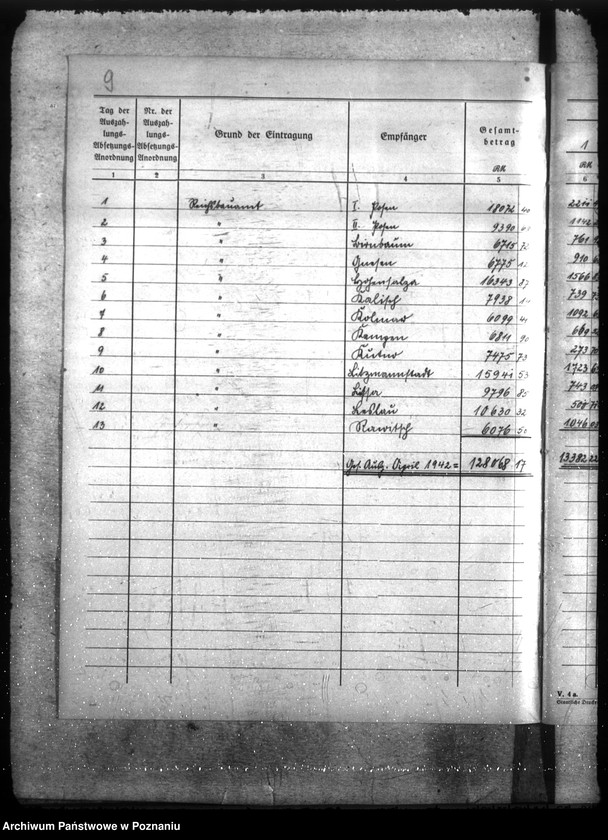 9
Tag der Auszah-lungs-Absetzungs-Anordnung | Nr. der Auszah-lungs-Absetzungs-Anordnung | Grund der Eintragung | Empfänger | Gesamt-betrag RM | 1 RM
1 | 2 | 3 | 4 | 5 | 6
1 Reichsbauamt I. Posen 18072 40
2 " II. Posen 9390
3 " Birnbaum 6715 72 761
4 " Gnesen 6775 12 910
5 " Hohensalza 16343 87 1566
6 " Kalisch 7938 739
7 " Kolmar 6099 1092
8 " Kempen 6811 90
9 " Kutno 7475 73 273
10 " Litzmannstadt 15941 53 1723
11 " Lissa 9796 85 743
12 " Leslau 10630 32
13 " Rawitsch 6076 50 1046
Ges. Ausg. April 1942 = 128068 17 13382 22
V. 4a.
Archiwum Państwowe w Poznaniu